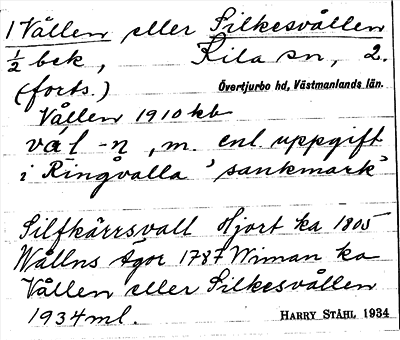 1 Vållen eller Silkesvållen
½ bek, Kila sn, 2.
(forts.) Övertjurbo hd, Västmanlands län.
Vållen 1910 kb
vál -n, m. enl. uppgift
i Ringvalla 'sankmark'
Silfkärrsvall Hjort ka 1805
Wållns Ägor 1787 Wiman ka
Vållen eller Silkesvållen
1934 ml. HARRY STÅHL 1934